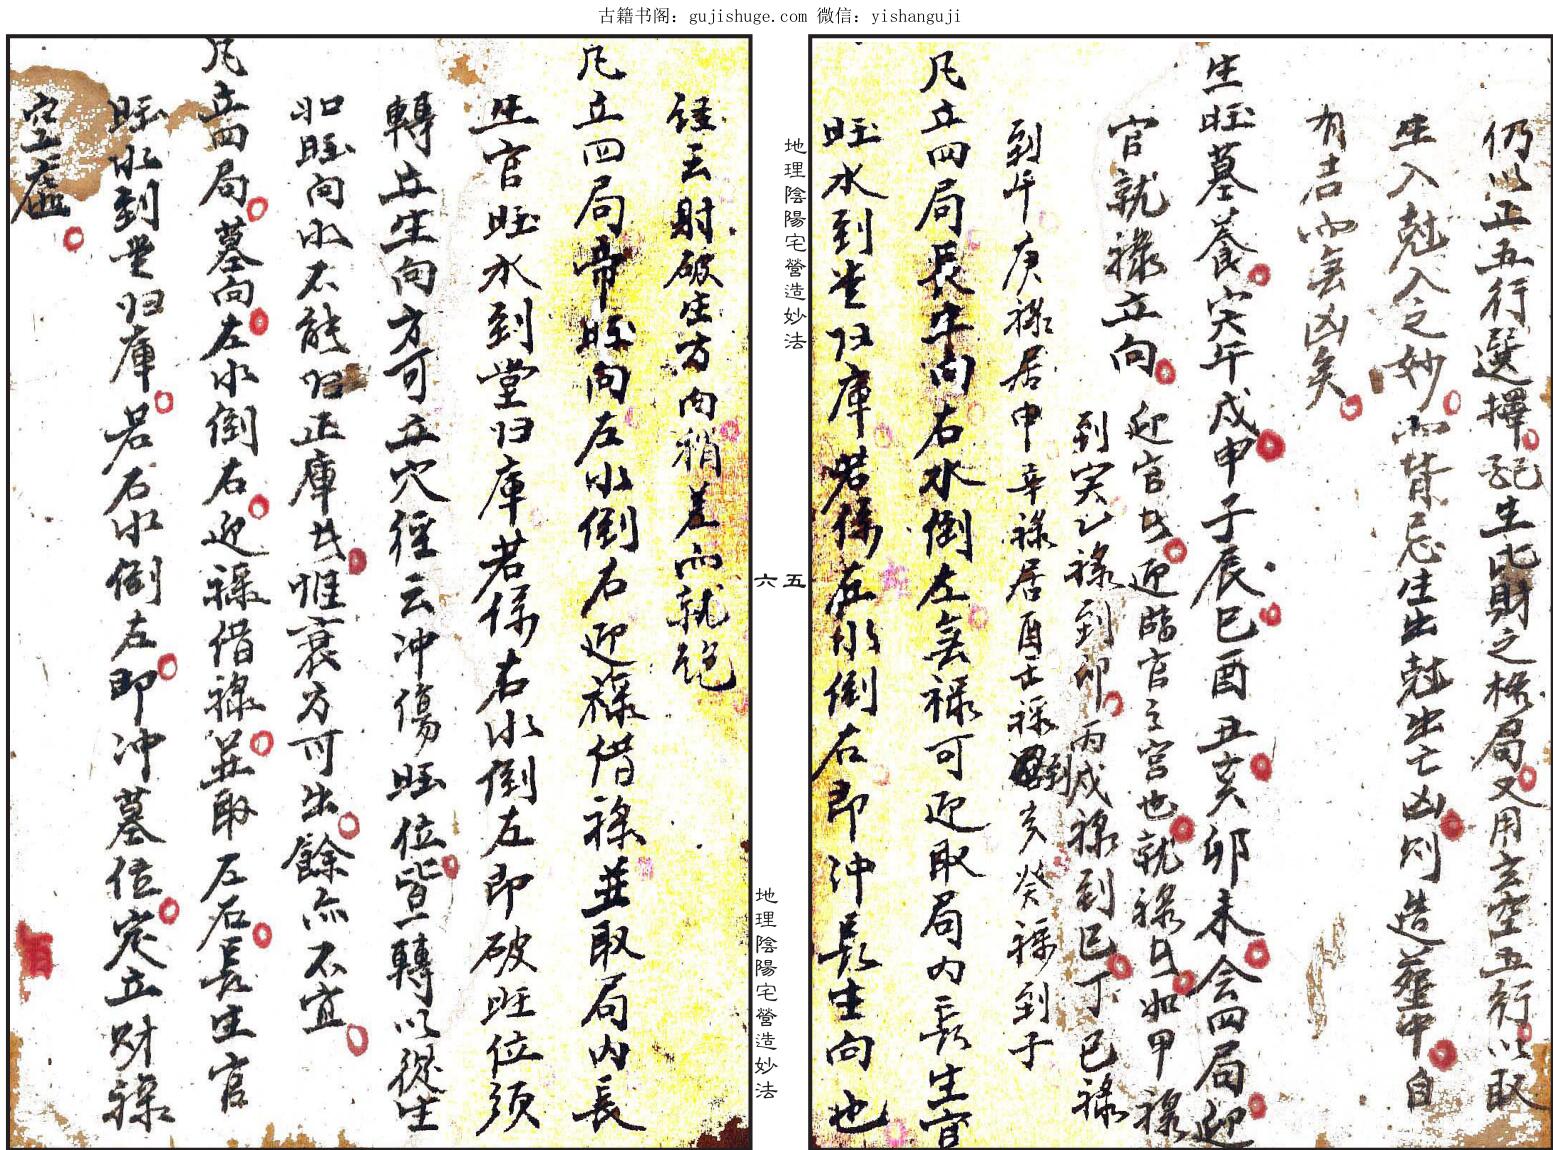 古籍书阁：gujishuge.com 微信：yishanguji
仍以正五行選擇配生比財之格局又用玄空五行以取
生入尅入之妙而背忌生出尅出亡凶則造塟中自
有吉而無凶矣
生旺墓養寅午戌申子辰巳酉丑亥卯未会四局迎
官就祿立向
迎官者迎臨官之宮也就祿者如甲祿
到寅乙祿到卯丙戊祿到巳丁己祿
到午庚祿居申辛祿居酉壬祿到亥癸祿到子
凡立四局長生向右水倒左無祿可迎取局内長生官
旺水到堂归庫若係左水倒右即冲長生向也
地理陰陽宅營造妙法
五
六
經云射破生方向稍差而就絕
凡立四局帝旺向左水倒右迎祿借祿並取局内長
生官旺水到堂归庫若係右水倒左即破旺位須
轉立生向方可立穴經云冲傷旺位皆一轉以從生
如旺向水不能归正庫者惟衰方可出餘而不宜
凡立四局墓向左水倒右迎祿借祿並取左右長生官
旺水到堂归庫若右水倒左即冲墓位定立财祿
空虛
地理陰陽宅營造妙法